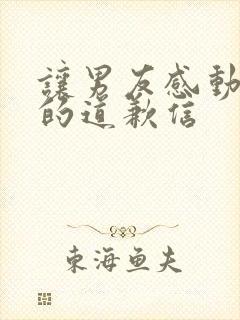 讓男友感動
的道歉信
東海鱼夫